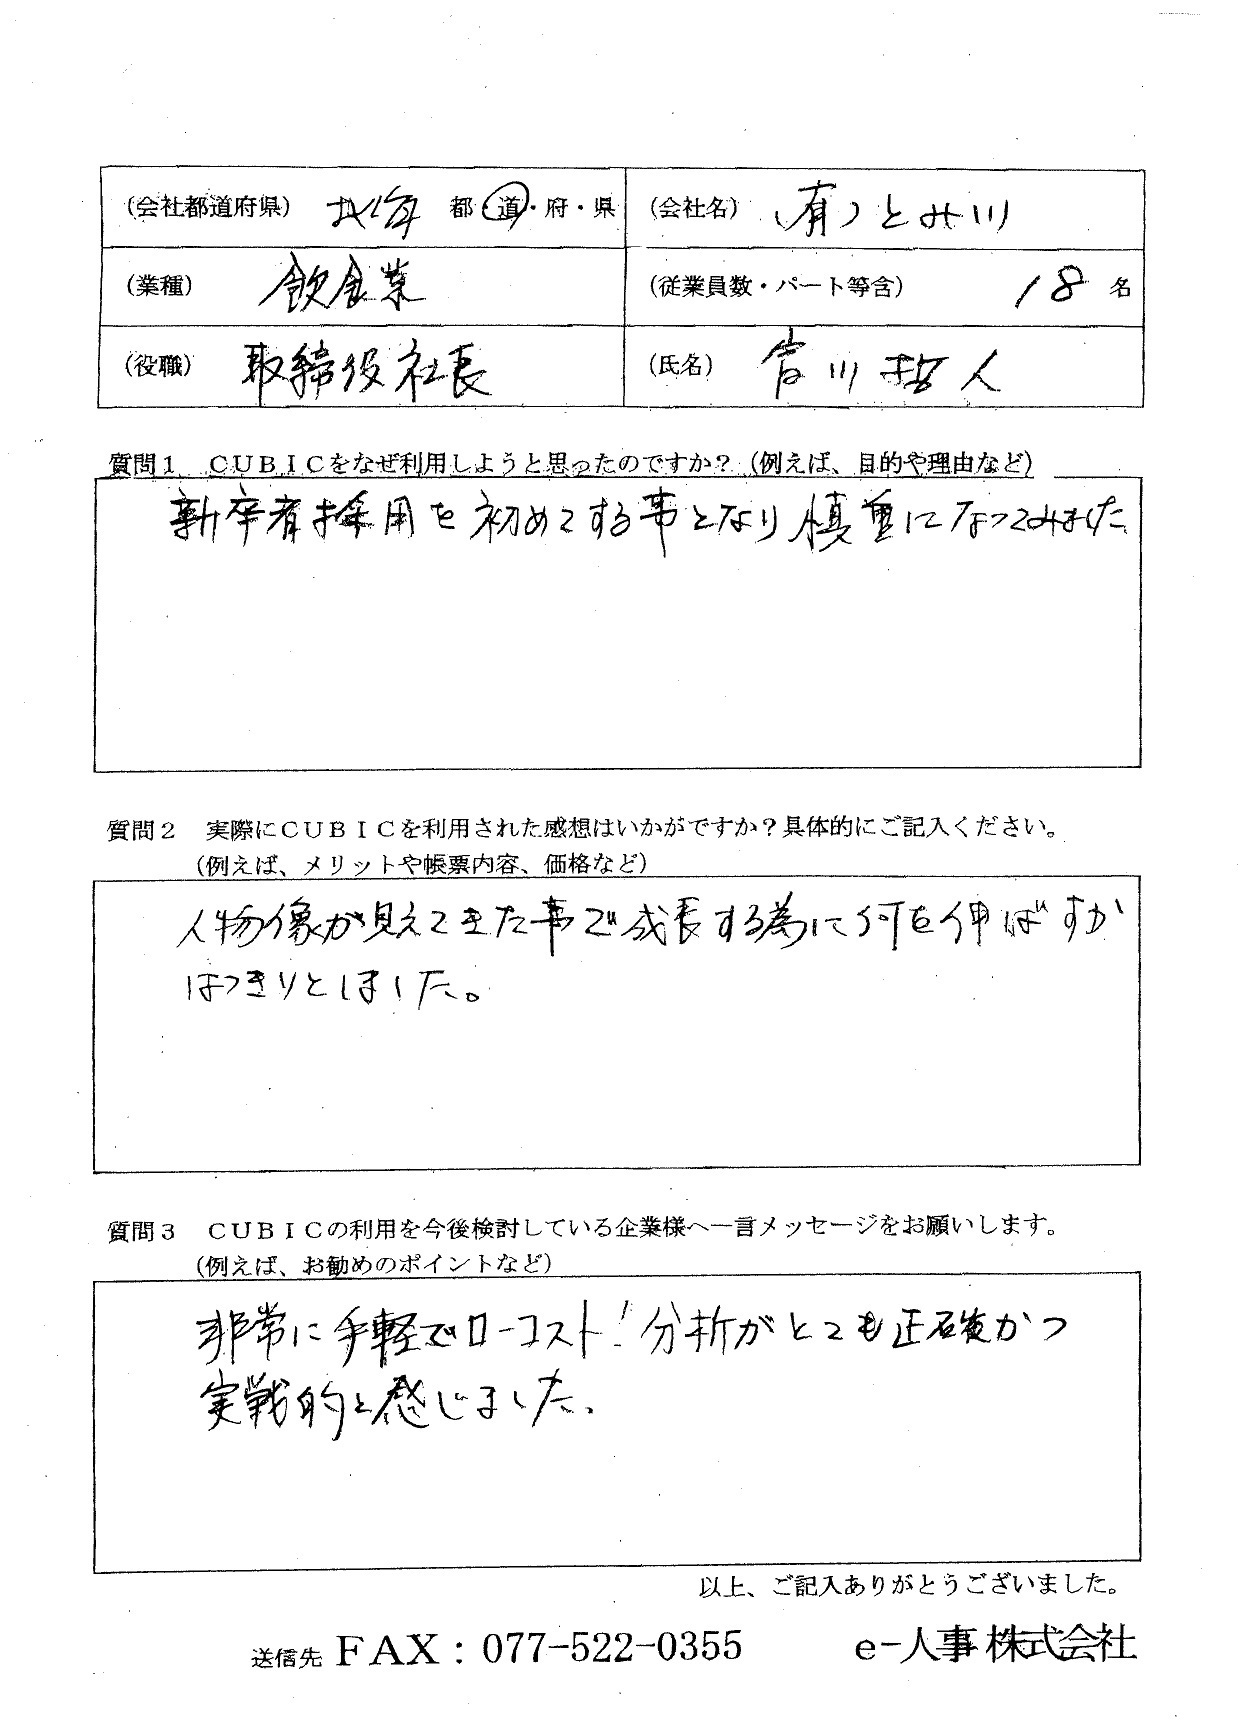 (会社都道府県) 北海 都・道・府・県 (会社名) (有)とみ川
(業種) 飲食業 (従業員数・パート等含) 18 名
(役職) 取締役社長 (氏名) 宮川哲人
質問1 CUBICをなぜ利用しようと思ったのですか?(例えば、目的や理由など)
新卒者採用を初めてする事となり慎重になってみました
質問2 実際にCUBICを利用された感想はいかがですか?具体的にご記入ください。
(例えば、メリットや帳票内容、価格など)
人物像が見えてきた事で成長する為に何を伸ばすか
はっきりとしました。
質問3 CUBICの利用を今後検討している企業様へ一言メッセージをお願いします。
(例えば、お勧めのポイントなど)
非常に手軽でローコスト!分析がとても正確かつ
実戦的と感じました。
以上、ご記入ありがとうございました。
送信先 FAX:077-522-0355 e-人事株式会社